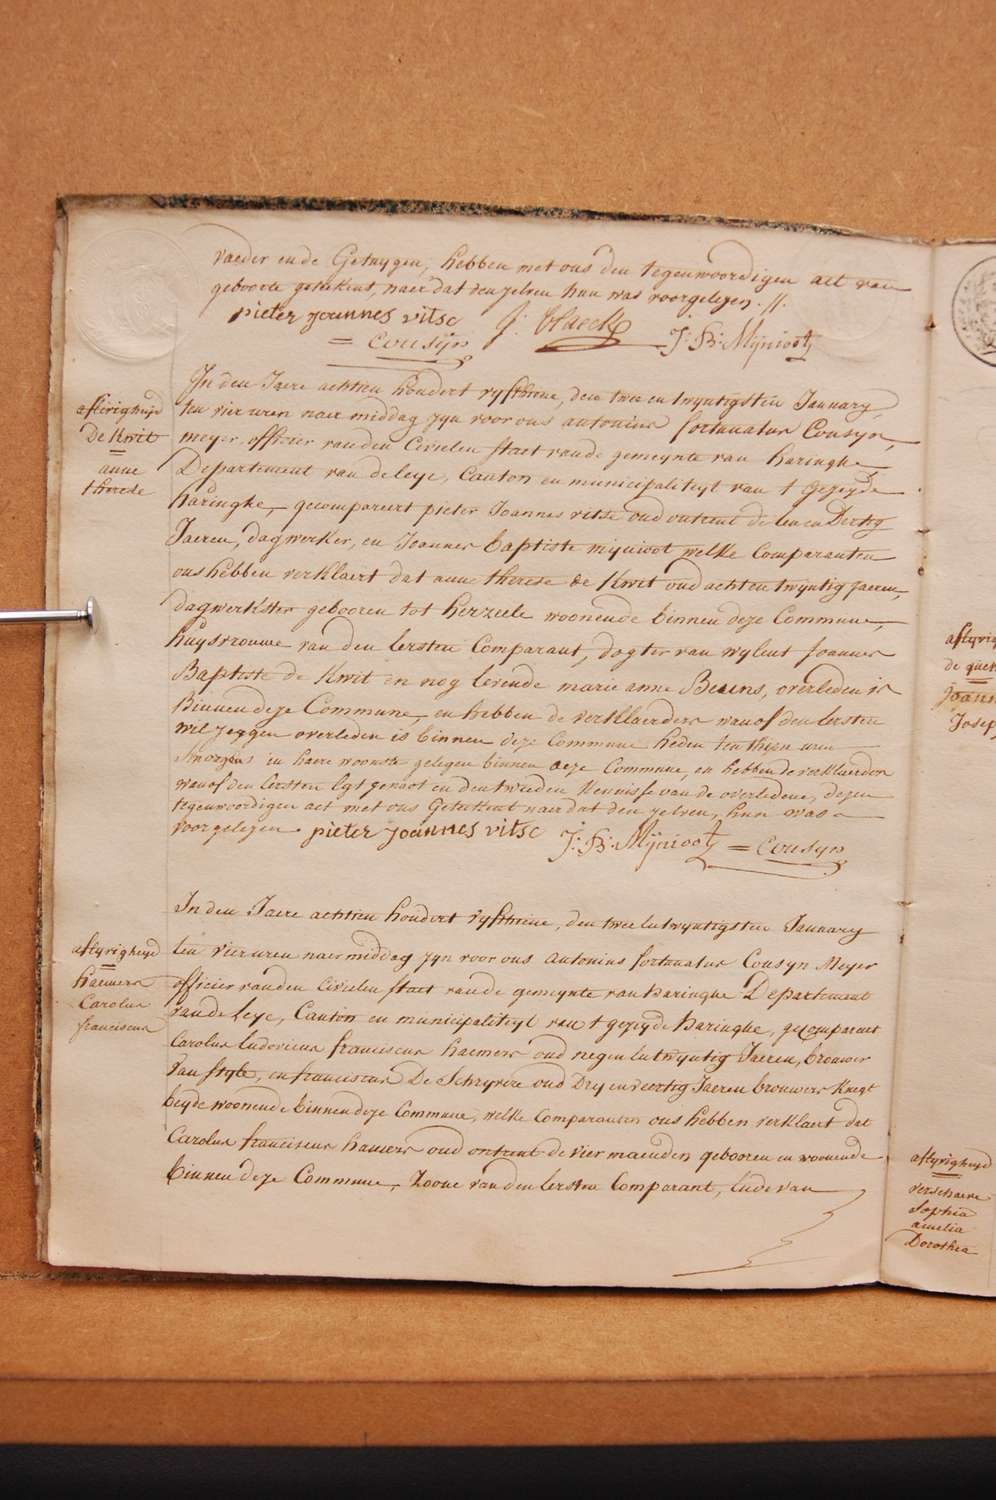 vaeder ende Getuygen, hebben met ons den tegenwoordigen act van
geboorte getekent, naer dat den zelven hun was voorgelezen. //.
pieter joannes vitse J: blaeck J: B: Mijnioot
= Cousijn
afsterigheijd
De Kwit
=
anne
therese
In den Jaere achtien hondert vijfthiene, den twee en twyntigsten January,
ten vier uren naer middag zyn voor ons antonius fortunatus Cousyn,
meyer, officier van den Civielen staet van de gemeynte van haringhe
Departement van de leye, Canton en municipaliteyt van t gezeyde
haringhe, gecompareert pieter Joannes vitse oud ontrent de een en Dertig
Jaeren, dagwerker, en Joannes baptiste mijnioot welke Comparanten
ons hebben verklaert dat anne therese de Kwit oud acht en twyntig jaeren,
dagwerkster gebooren tot herzeele woonende binnen deze Commune,
huysvrouwe van den eersten Comparant, dogter van wylent Joannes
Baptiste de Kwit en nog levende marie anne Beuns, overleden is
Binnen deze Commune, en hebben de verklaerders waeof den eersten
wil zeggen overleden is binnen deze Commune heden ten thien uren
smorgens in haere woonste gelegen binnen deze Commune, en hebben de verklaerders
waeof den eersten Egtgenoot en den tweeden Kennisse van de overledene, dezen
tegenwoordigen act met ons Getekent naer dat den zelven, hun was
voorgelezen pieter joannes vitse J: B: Mijnioot = Cousyn
In den Jaere achtien hondert vyfthiene, den twee en twyntigsten January
afsterigheyd
=
haemers
Carolus
franciscus
ten vier uren naer middag zyn voor ons antonius fortunatus Cousyn Meyer
officier van den Civielen staet van de gemeynte van haringhe Departement
van de leye, Canton en municipaliteyt van t gezeyde haringhe, gecompareert
Carolus Ludovicus franciscus haemers oud negen en twyntig Jaeren, brouwer
van style, en franciscus De Schryvere oud Dry en veertig Jaeren brouwers Knegt
beyde woonende binnen deze Commune, welke Comparanten ons hebben verklaert dat
Carolus franciscus haemers oud ontrent de vier maenden gebooren en woonende
binnen deze Commune, Zoone van den eersten Comparant, ende van
afstyrig
de quek
=
joann
Josep
afstyrigheyd
=
verschaeve
Sophia
amelia
Dorothea